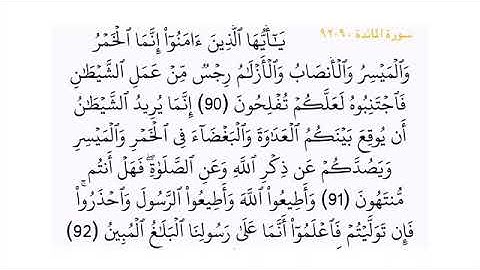 سورة المائدة ٩٠-٩٢
يَـٰٓأَيُّهَا ٱلَّذِينَ ءَامَنُوٓا۟ إِنَّمَا ٱلْخَمْرُ
وَٱلْمَيْسِرُ وَٱلْأَنصَابُ وَٱلْأَزْلَـٰمُ رِجْسٌ مِّنْ عَمَلِ ٱلشَّيْطَـٰنِ
فَٱجْتَنِبُوهُ لَعَلَّكُمْ تُفْلِحُونَ (90) إِنَّمَا يُرِيدُ ٱلشَّيْطَـٰنُ
أَن يُوقِعَ بَيْنَكُمُ ٱلْعَدَٰوَةَ وَٱلْبَغْضَآءَ فِى ٱلْخَمْرِ وَٱلْمَيْسِرِ
وَيَصُدَّكُمْ عَن ذِكْرِ ٱللَّهِ وَعَنِ ٱلصَّلَوٰةِ ۖ فَهَلْ أَنتُم
مُّنتَهُونَ (91) وَأَطِيعُوا۟ ٱللَّهَ وَأَطِيعُوا۟ ٱلرَّسُولَ وَٱحْذَرُوا۟ ۚ
فَإِن تَوَلَّيْتُمْ فَٱعْلَمُوٓا۟ أَنَّمَا عَلَىٰ رَسُولِنَا ٱلْبَلَـٰغُ ٱلْمُبِينُ (92)